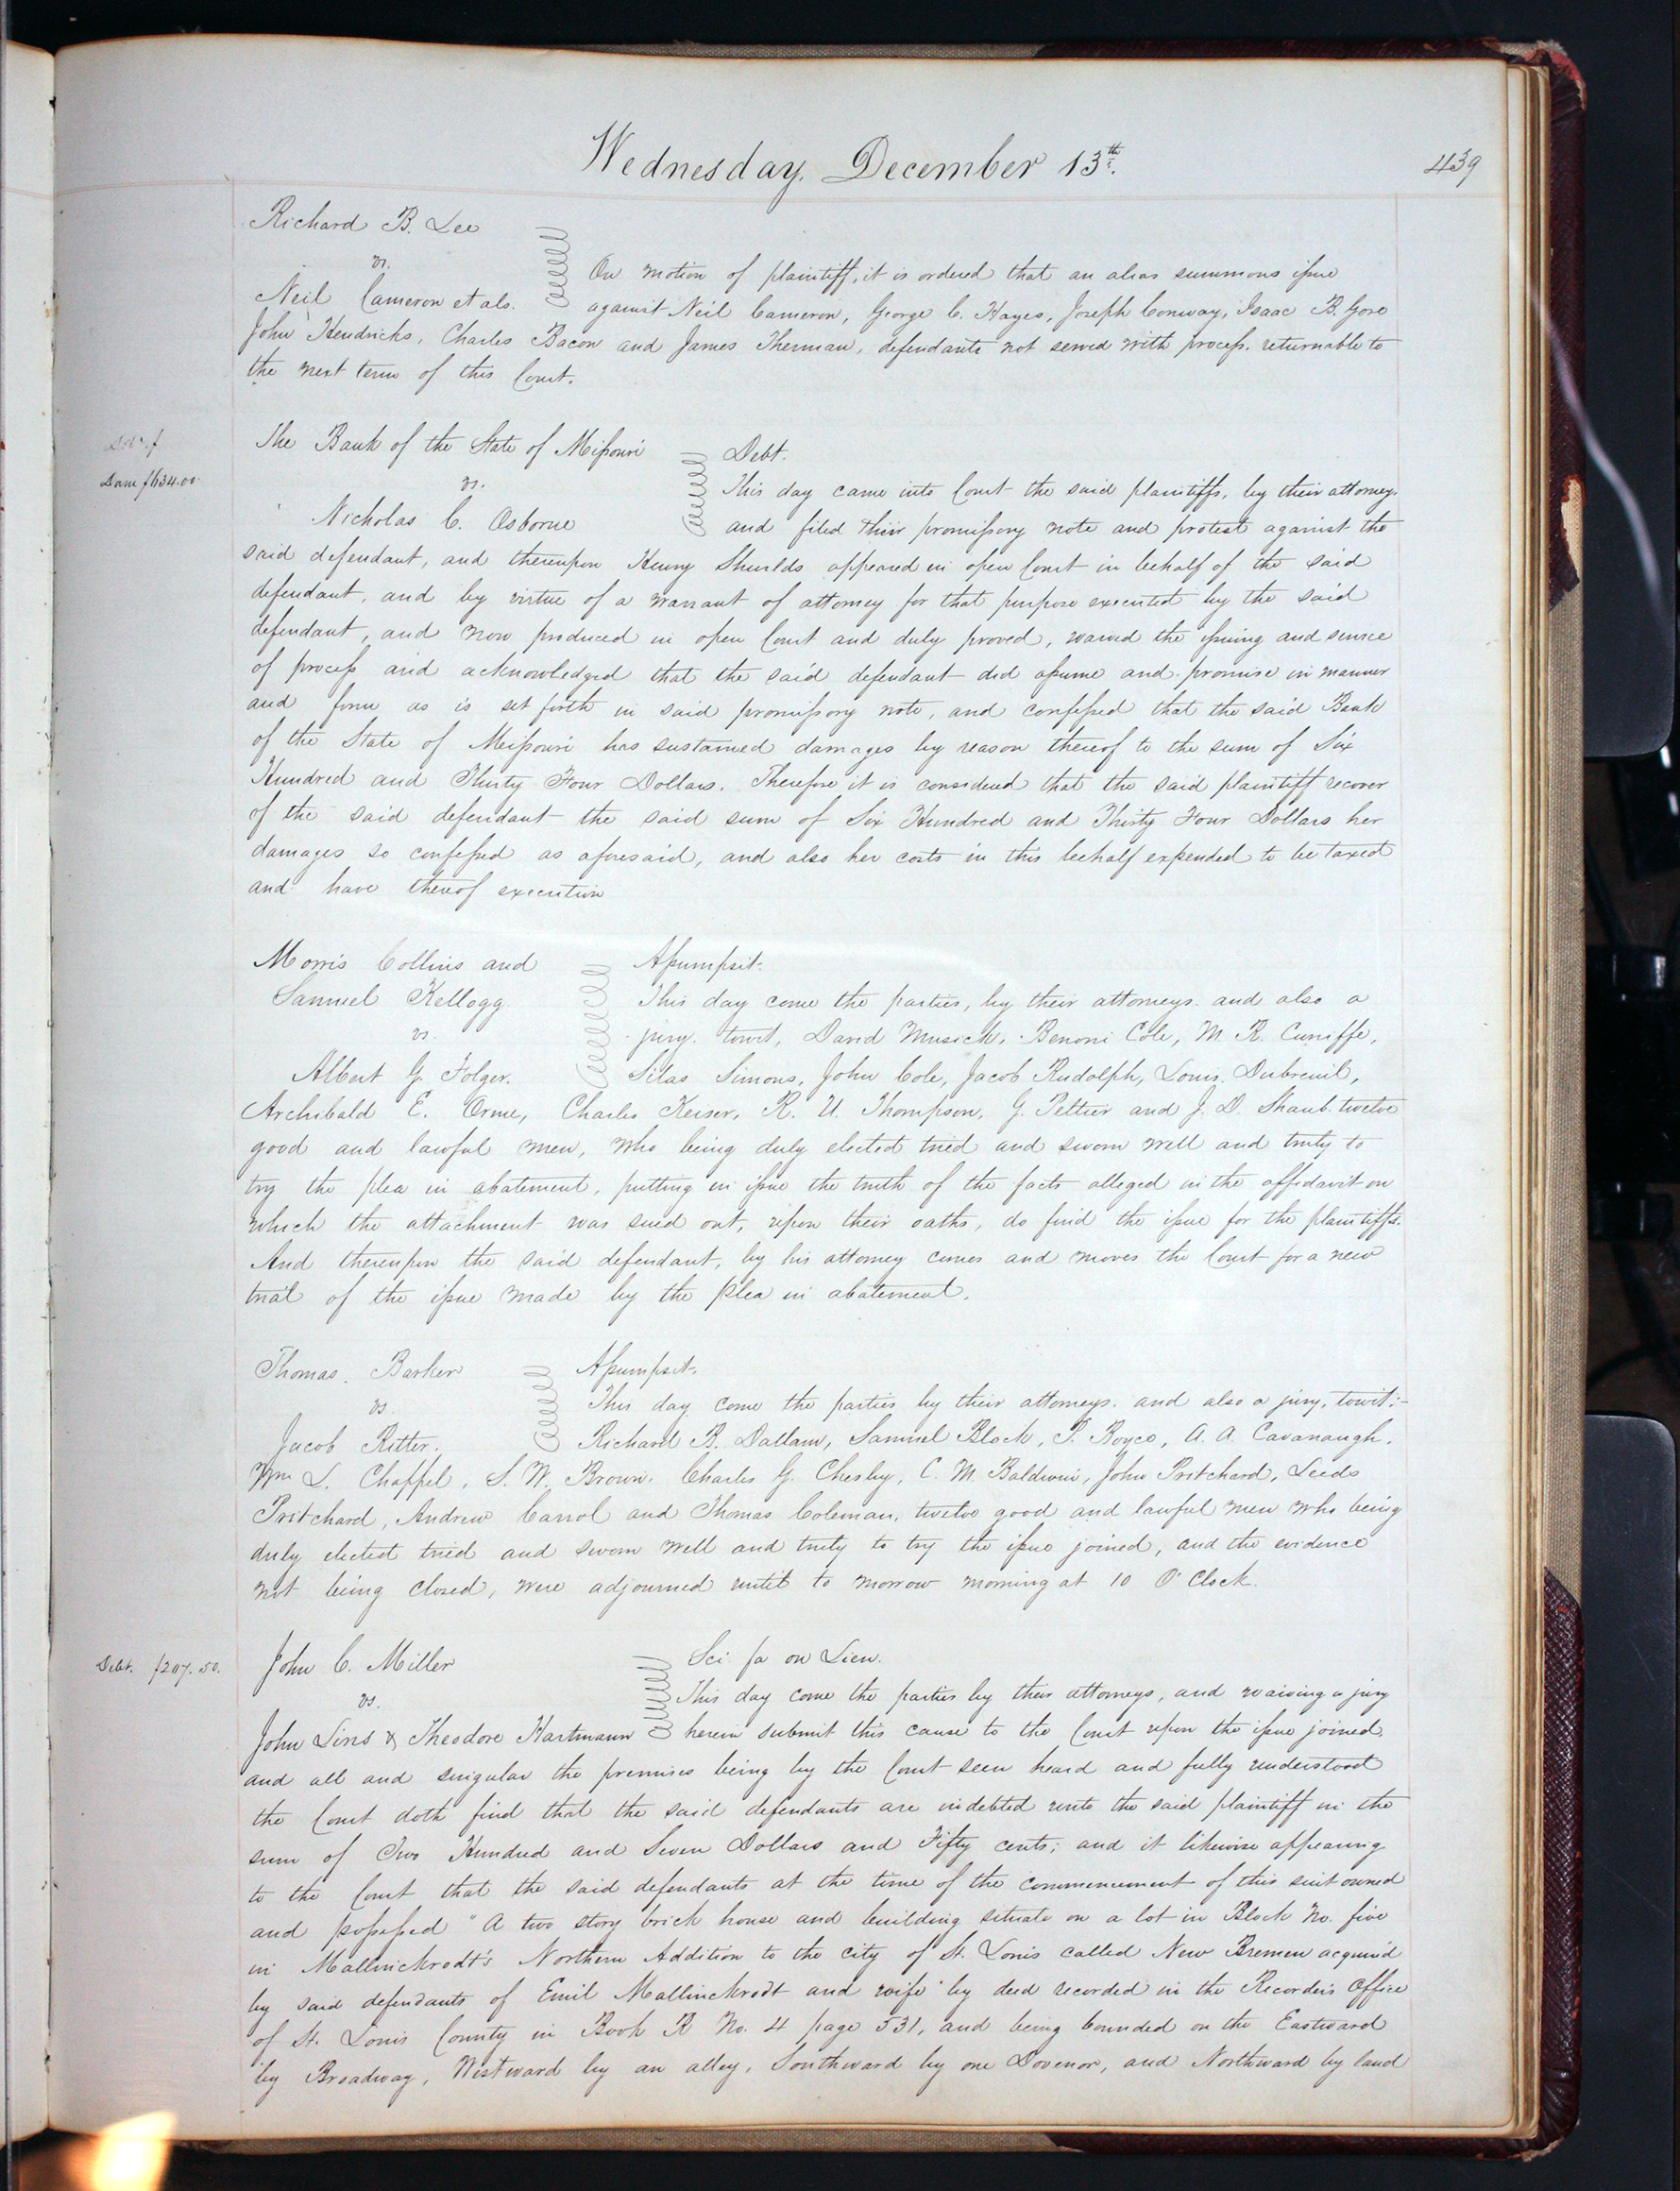 Wednesday, December 13th.
439
Richard B. Lee
vs.
Neil Cameron et als.
On motion of plaintiff, it is ordered that an alias summons issue
against Neil Cameron, George C. Hayes, Joseph Conway, Isaac B. Gore
John Hendricks, Charles Bacon and James Sherman, defendants not served with process. returnable to
the next term of this Court.
Dam $634.00
The Bank of the State of Missouri
vs.
Nicholas C. Osborne
Debt.
This day came into Court the said plaintiffs, by their attorney.
and filed their promissory note and protest against the
said defendant, and thereupon Henry Shurlds appeared in open Court in behalf of the said
defendant, and by virtue of a warrant of attorney for that purpose executed by the said
defendant, and now produced in open Court and duly proved, waived the issuing and service
of process and acknowledged that the said defendant did assume and promise in manner
and form as is set forth in said promissory note, and confessed that the said Bank
of the State of Missouri has sustained damages by reason thereof to the sum of Six
Hundred and Thirty Four Dollars. Therefore it is considered that the said plaintiff recover
of the said defendant the said sum of Six Hundred and Thirty Four Dollars her
damages so confessed as aforesaid, and also her costs in this behalf expended to be taxed
and have thereof execution
Morris Collins and
Samuel Kellogg
vs.
Albert G. Folger.
Assumpsit.
This day come the parties, by their attorneys. and also a
jury. towit, David Musick, Benoni Cole, M. R. Cuniffe,
Silas Simons, John Cole, Jacob Rudolph, Louis Dubreuil,
Archibald E. Orme, Charles Keiser, R. U. Thompson, G. Peltier and J. D. Shaub. twelve
good and lawful men, who being duly elected tried and sworn well and truly to
try the plea in abatement, putting in issue the truth of the facts alleged in the affidavit on
which the attachment was sued out, upon their oaths, do find the issue for the plaintiffs.
And thereupon the said defendant, by his attorney comes and moves the Court for a new
trial of the issue made by the plea in abatement.
Thomas Barker
vs.
Jacob Ritter.
Assumpsit.
This day come the parties by their attorneys. and also a jury, towit:-
Richard B. Dallam, Samuel Block, P. Royce, A. A. Cavanaugh,
Wm L. Chappel, S. W. Brown, Charles G. Chesley, C. M. Baldwin, John Pritchard, Leeds
Pritchard, Andrew Carrol and Thomas Coleman, twelve good and lawful men who being
duly elected tried and sworn well and truly to try the issue joined, and the evidence
not being closed, were adjourned until to morrow morning at 10 O'Clock.
Debt. $207.50.
John C. Miller
vs.
John Lins & Theodore Hartmann
Sci fa on Lien.
This day come the parties by their attorneys, and waiving a jury
herein submit this cause to the Court upon the issue joined,
and all and singular the premises being by the Court seen heard and fully understood
the Court doth find that the said defendants are indebted unto the said plaintiff in the
sum of Two Hundred and Seven Dollars and Fifty cents; and it likewise appearing
to the Court that the said defendants at the time of the commencement of this suit owned
and possessed "A two story brick house and building situate on a lot in Block No. five
in Mallinckrodt's Northern Addition to the city of St. Louis called New Bremen acquired
by said defendants of Emil Mallinckrodt and wife by deed recorded in the Recorder's Office
of St. Louis County in Book R No. 4 page 531, and being bounded on the Eastward
by Broadway, Westward by an alley, Southward by one Dovenor, and Northward by land